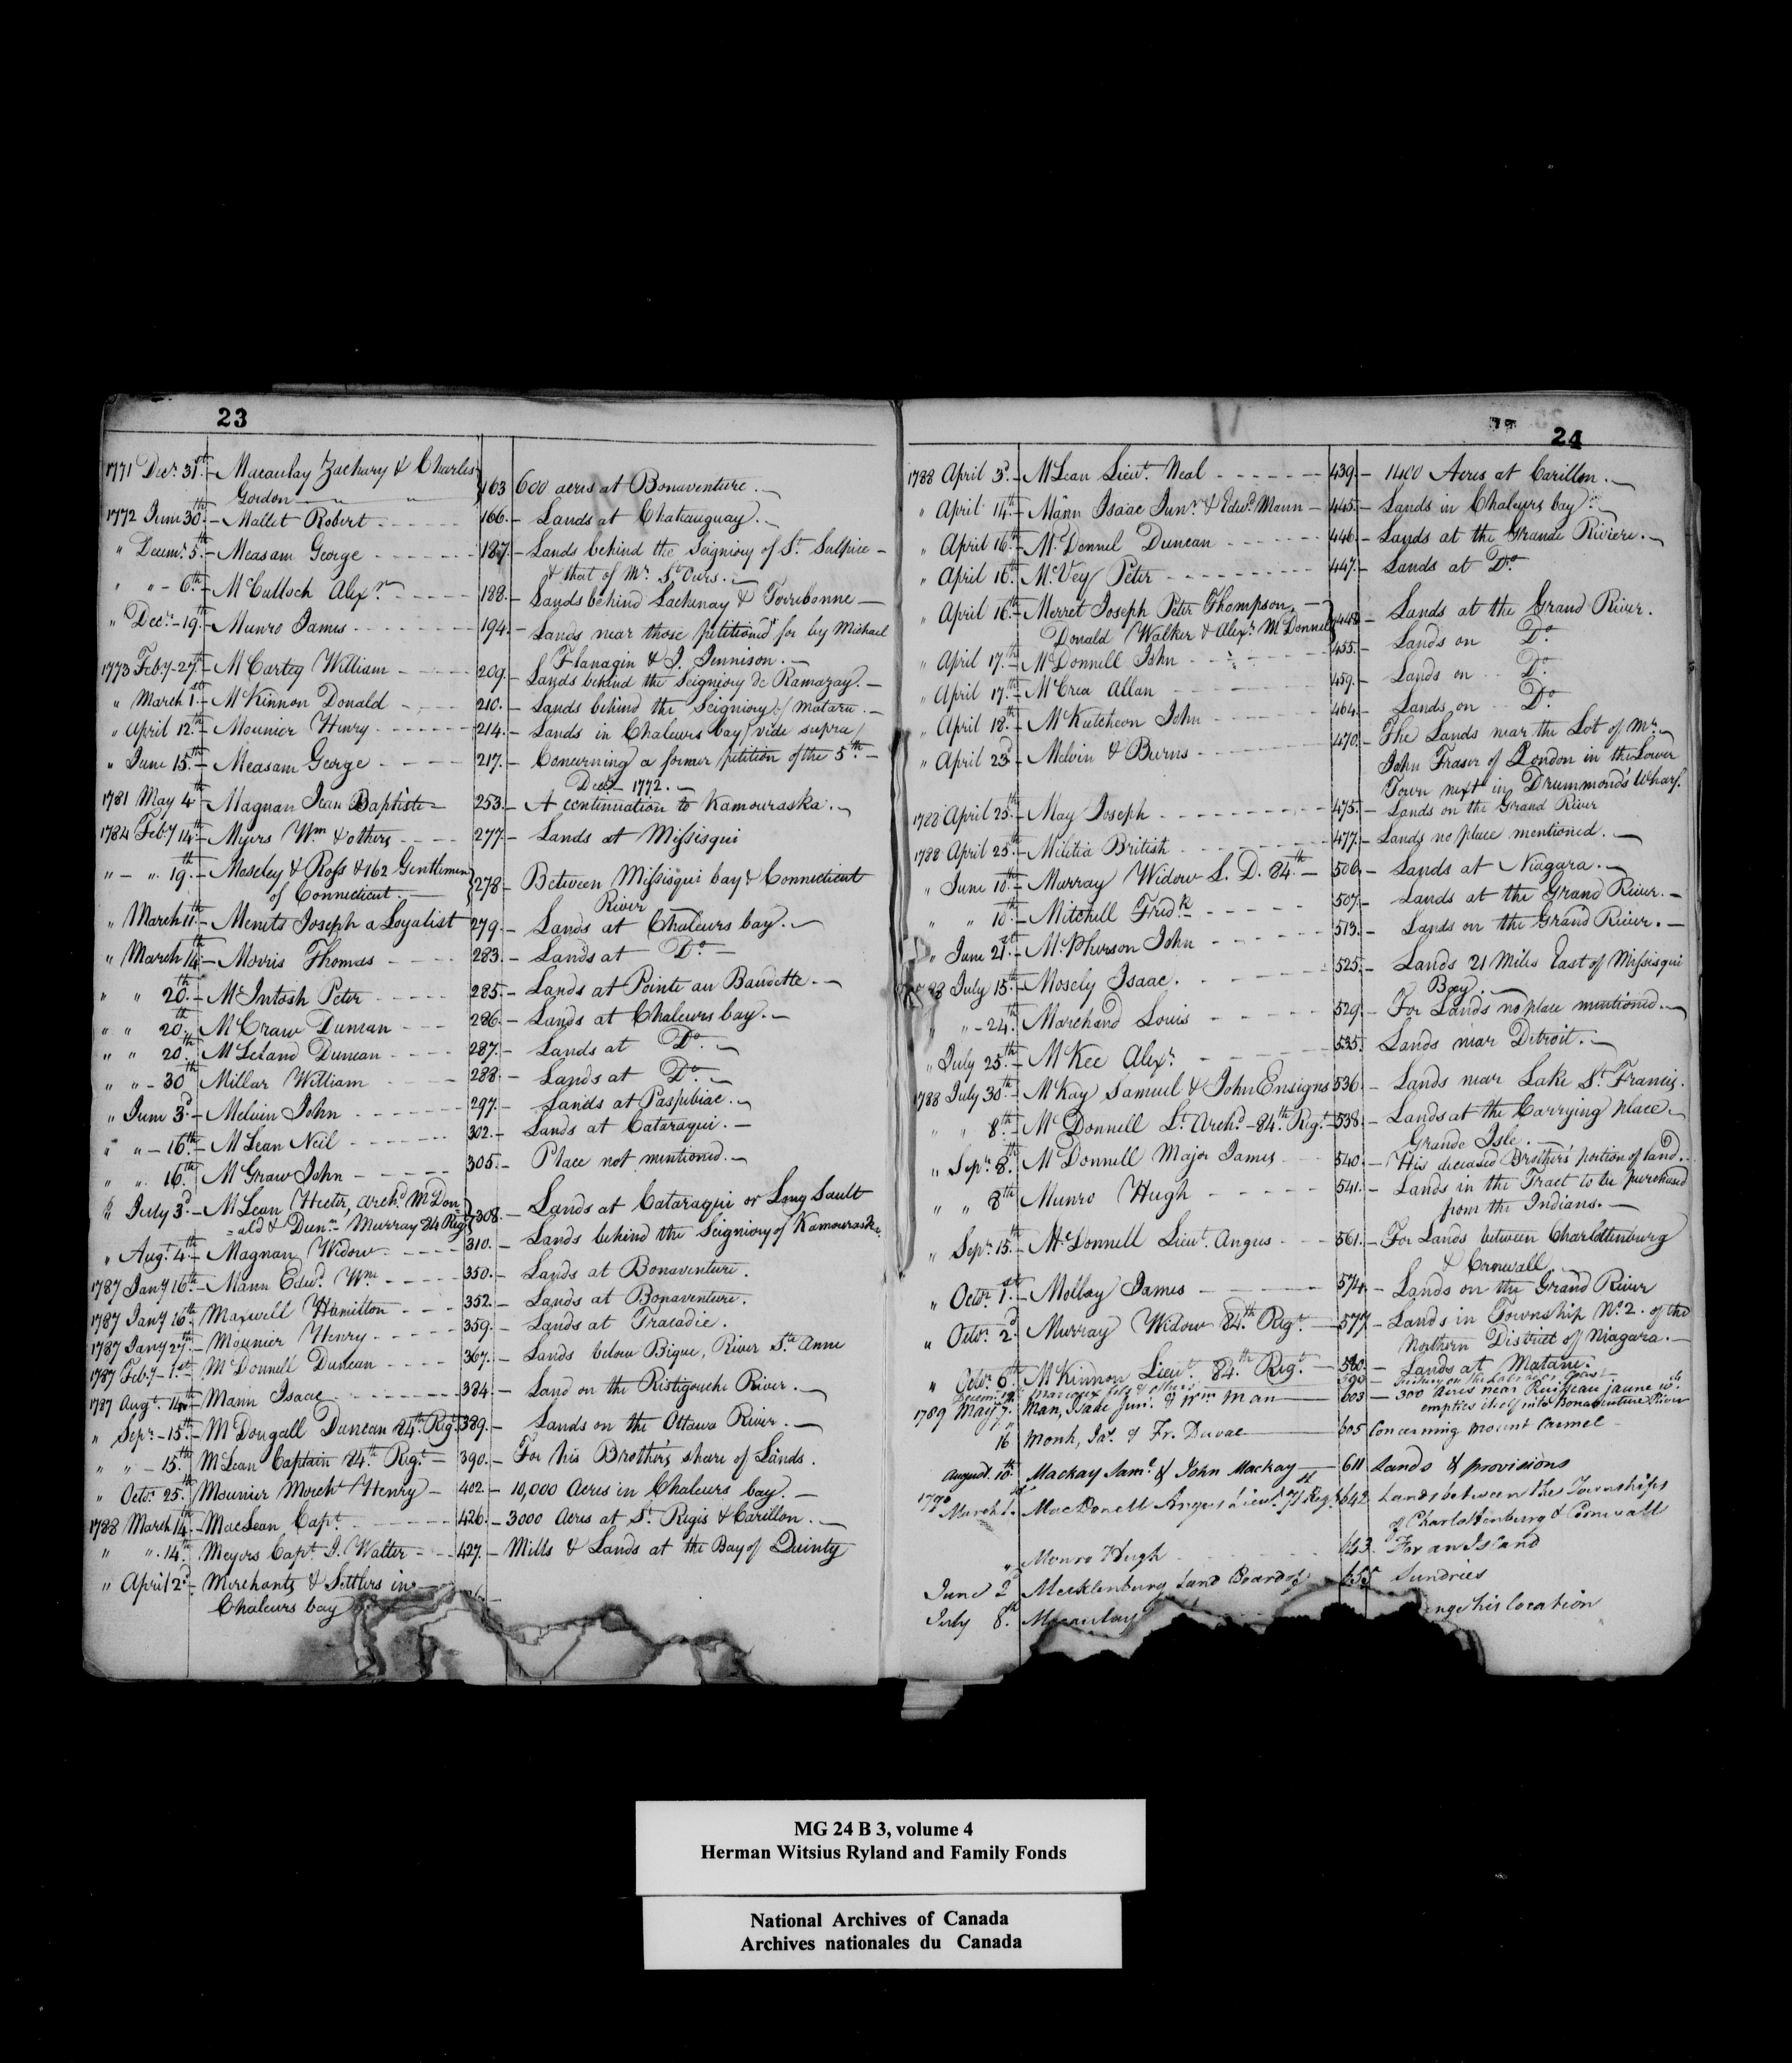 23
1771 Decr. 31st. Macaulay Zachary & Charles
Gordon 163 600 acres at Bonaventure.
1772 June 30th. Mallet Robert 166. Lands at Chateauguay.
" Decemr. 5th. Measam George 187. Lands behind the Seigniory of St. Sulpice
& that of Mr. St. Ours.
" " 6th. McCulloch Alexr. 188. Lands behind Lachenay & Terrebonne
" Decr. 19th. Munro James 194. Lands near those petitioned for by Michael
Flanagin & J. Jennison.
1773 Feby. 27th. McCartey William 209. Lands behind the Seigniory de Ramazay.
" March 1st. McKinnon Donald 210. Lands behind the Seigniory / Matara.
" April 12th. Mounier Henry 214. Lands in Chaleurs bay / vide supra /
" June 15th. Measam George 217. Concerning a former petition of the 5th.
Decr. 1772.
1781 May 4th. Magnan Jean Baptiste 253. A continuation to Kamouraska.
1784 Feby. 14th. Myers Wm. & others 277. Lands at Missisqui
" " 19th. Moseley & Ross & 162 Gentlemen
of Connecticut. 278 Between Missisqui bay & Connecticut
River
" March 11th. Menets Joseph a Loyalist 279. Lands at Chaleurs bay.
" March 14th. Morris Thomas 283. Lands at Do.
" " 20th. McIntosh Peter 285. Lands at Pointe au Baudette.
" " 20th. McCraw Duncan 286. Lands at Chaleurs bay.
" " 20th. McLeland Duncan 287. Lands at Do.
" " 30th. Millar William 288. Lands at Do.
" June 3d. Melvin John 297. Lands at Paspibiac.
" " 16th. McLean Neil 302. Lands at Cataraqui.
" " 16th. McGraw John 305. Place not mentioned.
" July 3d. McLean Hector, Archd. McDon
=ald & Dunn. Murray 84 Regt. 308. Lands at Cataraqui or Long Sault
" Augt. 4th. Magnan Widow 310. Lands behind the Seigniory of Kamouraska
1787 Jany. 16th. Mann Edwd. Wm. 350. Lands at Bonaventure.
1787 Jany. 16th. Maxwell Hamilton 352. Lands at Bonaventure.
1787 Jany. 27th. Mounier Henry 359. Lands at Tracadie.
1787 Feby. 1st. McDonnell Duncan 367. Lands below Bique, River Ste. Anne
1787 Augt. 14th. Mann Isaac 384. Land on the Ristigouche River.
" Sepr. 15th. McDougall Duncan 84th. Regt. 389. Lands on the Ottawa River.
" " 15th. McLean Captain 84th. Regt. 390. For his Brother's share of Lands.
" Octor. 25th. Mounier Mercht. Henry 402. 10,000 Acres in Chaleurs bay.
1788 March 14th. MacLean Capt. 426. 3000 Acres at St. Regis & Carillon.
" " 14th. Meyers Capt. J. Walter 427. Mills & Lands at the Bay of Quinty
" April 2d. Merchants & Settlers in
Chaleurs bay
24
1788 April 3d. McLean Lieut. Neal 439. 1400 Acres at Carillon.
" April 14th. Mann Isaac Junr. & Edwd. Mann 445. Lands in Chaleurs bay.
" April 16th. McDonnel Duncan 446. Lands at the Grande Riviere.
" April 16th. McVey Peter 447. Lands at Do.
" April 16th. Merret Joseph Peter Thompson,
Donald Walker & Alexr. McDonnell 448 Lands at the Grand River.
" April 17th. McDonnell John 455. Lands on Do.
" April 17th. McCrea Allan 459. Lands on Do.
" April 18th. McKutcheon John 464. Lands on Do.
" April 23d. Melvin & Burns 470. The Lands near the Lot of Mr.
John Fraser of London in the Lower
Town next in Drummond's Wharf.
1788 April 25th. May Joseph 475. Lands on the Grand River
1788 April 25th. Militia British 477. Lands no place mentioned.
" June 10th. Murray Widow L. D. 84th. 506. Lands at Niagara.
" " 10th. Mitchell Fredk. 507. Lands at the Grand River.
" June 21st. McPherson John 513. Lands on the Grand River.
1788 July 15th. Mosely Isaac. 525. Lands 21 Miles East of Missisqui
Bay.
" " 24th. Marchand Louis 529. For Lands no place mentioned.
" July 25th. McKee Alexr. 535. Lands near Detroit.
1788 July 30th. McKay Samuel & John Ensigns 536. Lands near Lake St. Francis.
" " 8th. McDonnell Lt. Archd. 84th. Regt. 538. Lands at the Carrying place
Grande Isle.
" Sepr. 8th. McDonnell Major James 540. His deceased Brother's portion of land.
" " 8th Munro Hugh 541. Lands in the Tract to be purchased
from the Indians.
" Sepr. 15th. McDonnell Lieut. Angus 561. For Lands between Charlottenburg
& Cornwall
" Octor. 1st. Molloy James 574. Lands on the Grand River
" Octor. 2d. Murray Widow 84th. Regt. 577 Lands in Township No. 2. of the
Northern District of Niagara.
" Octor. 6th. McKinnon Lieut. 84th. Regt. 580. Lands at Matane.
Decem. 12 Marcoux & others 590 Fishery on the Labrador Coast
1789 May 7th. Man, Isaac Junr. & Wm Man 603 300 acres near Ruisseau jaune wh.
empties itself into Bonaventure River
16 Monk, Jas. & Fr. Duval 605 Concerning mount Carmel
August. 10th. Mackay Saml. & John Mackay 611 Lands & provisions
1790
March 1st. MacDonell Angus Lieut. 71 Regt. 642 Lands between the Townships
of Charlottenburg & Cornwall
" Monro Hugh 643. For an Island
June 2d Mecklenburg Land Board of 655 Sundries
July 8th. Macaulay enge his location
MG 24 B 3, volume 4
Herman Witsius Ryland and Family Fonds
National Archives of Canada
Archives nationales du Canada